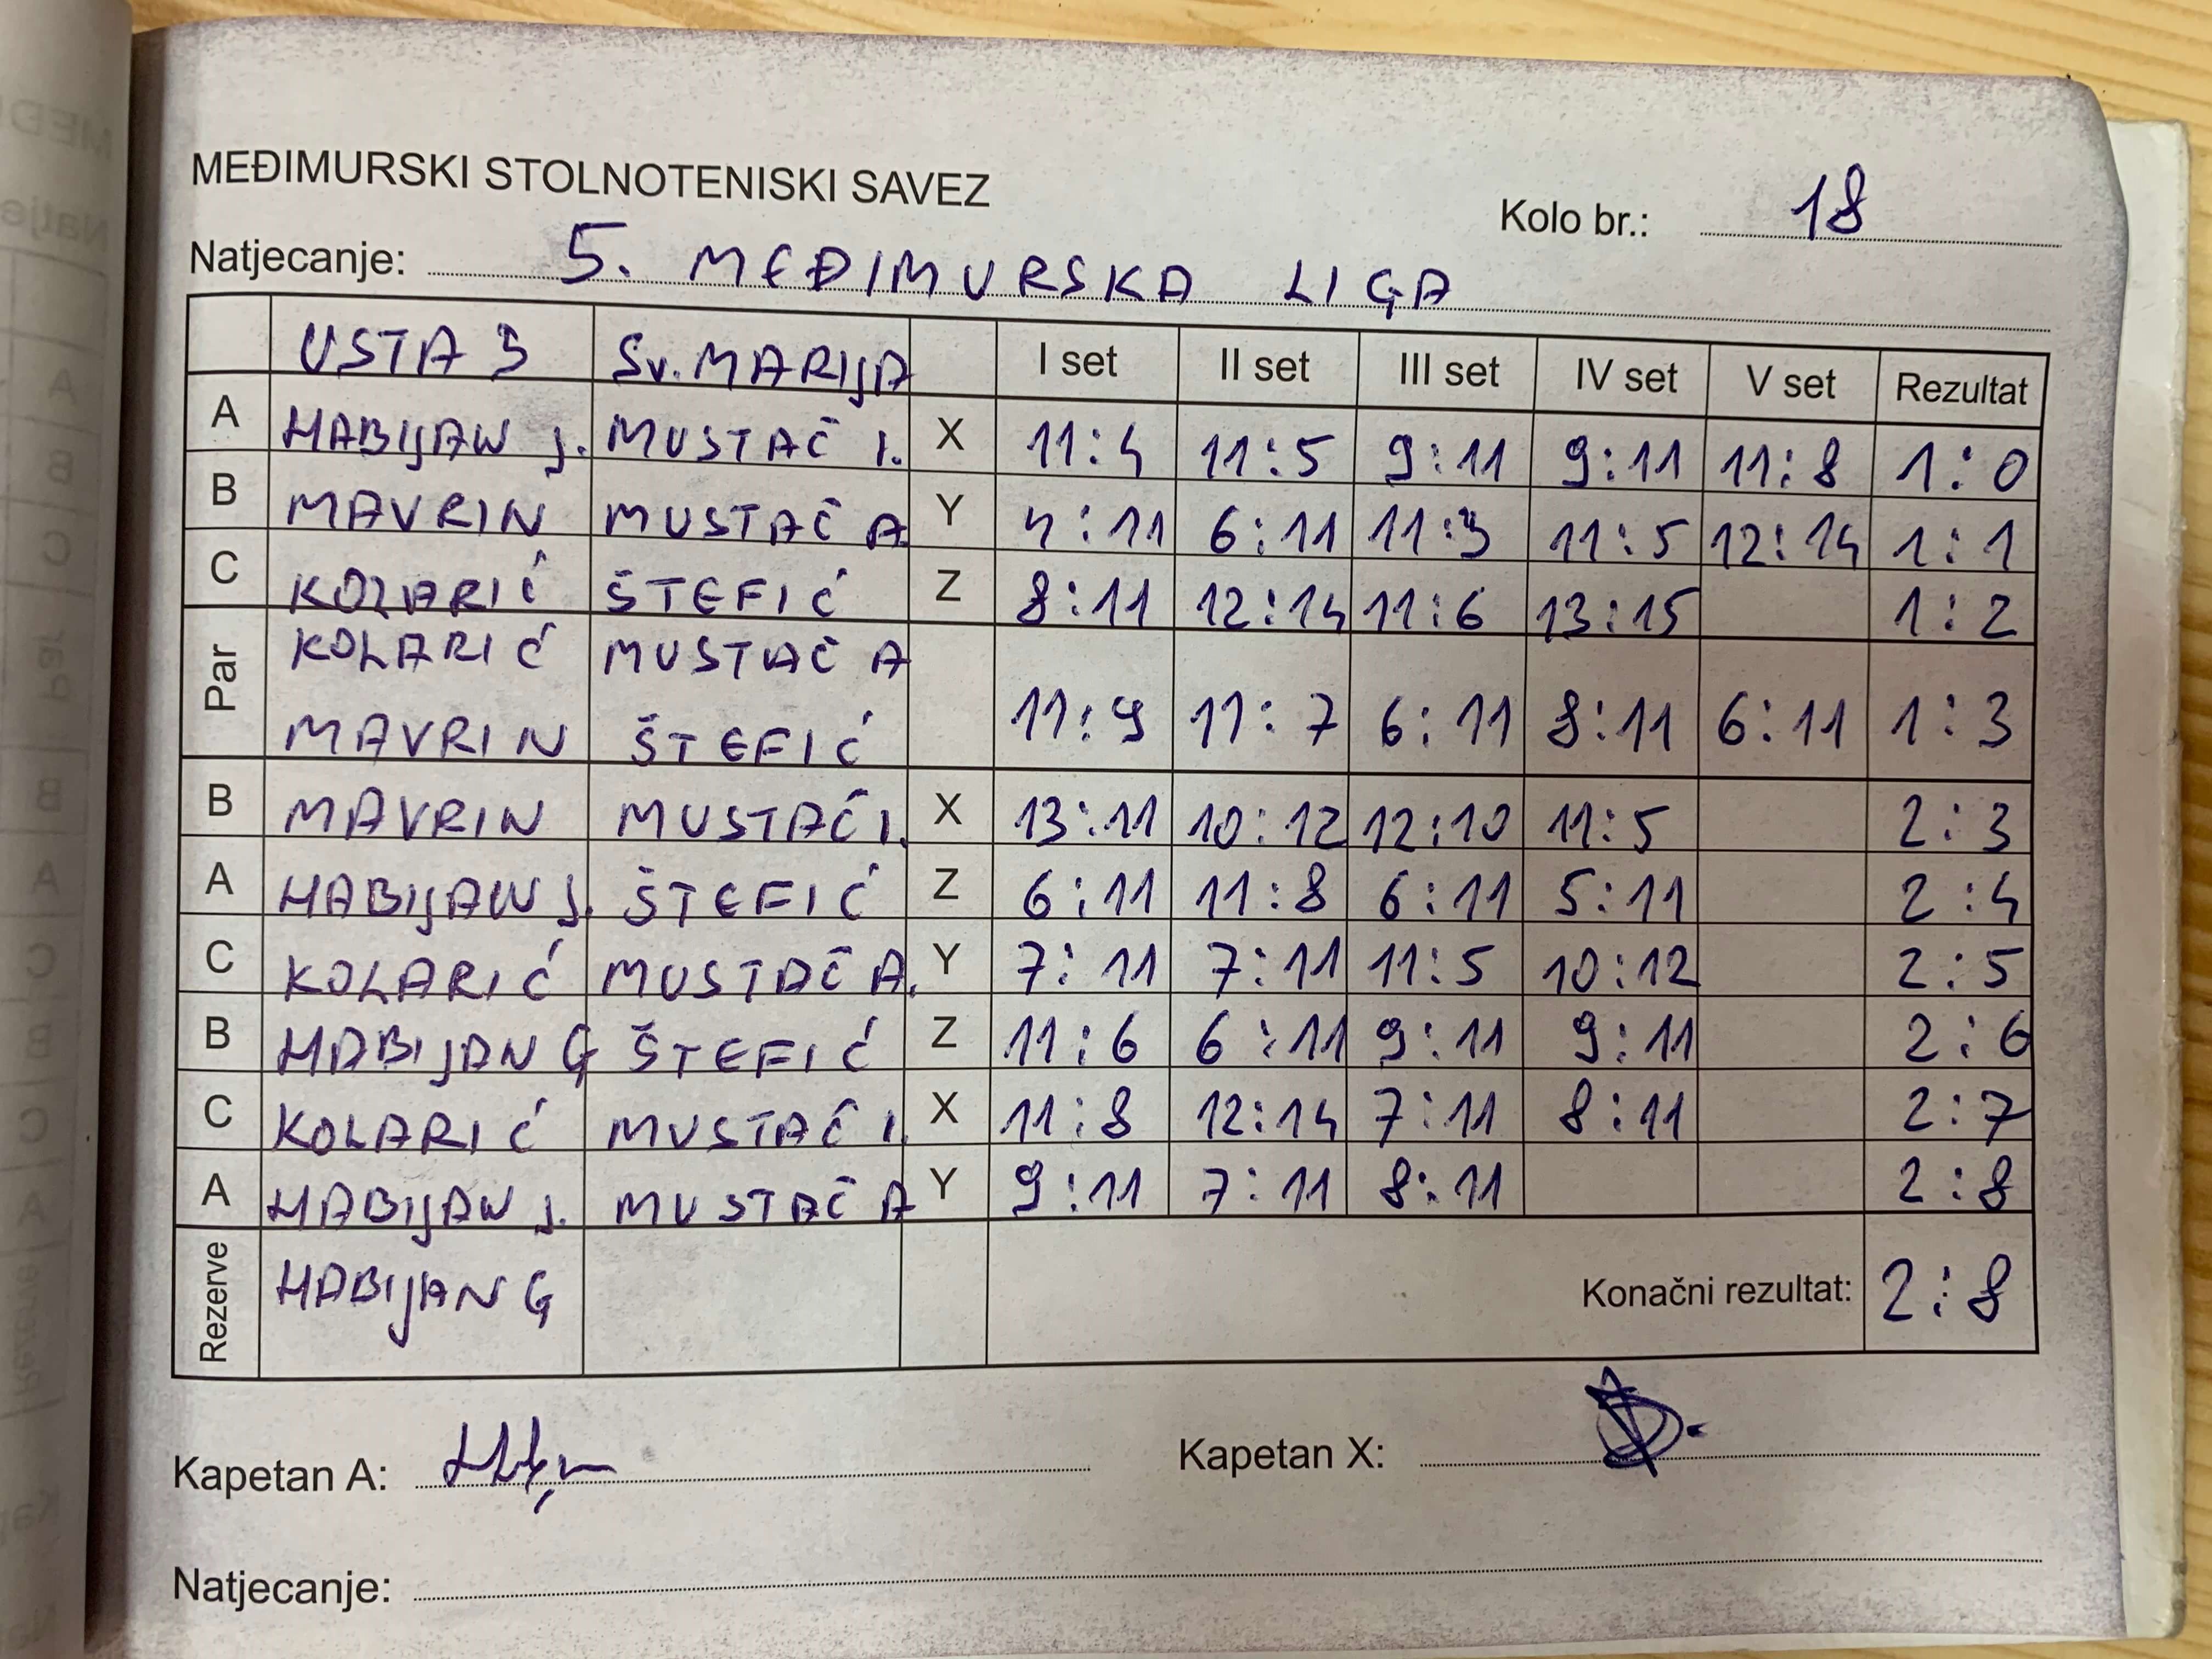 MEĐIMURSKI STOLNOTENISKI SAVEZ
Kolo br.: 18
Natjecanje: 5. MEĐIMURSKA LIGA
USTA 3 Sv. MARIJA I set II set III set IV set V set Rezultat
A HABIJAN J. MUSTAČ I. X 11:4 11:5 9:11 9:11 11:8 1:0
B MAVRIN MUSTAČ A. Y 4:11 6:11 11:3 11:5 12:14 1:1
C KOLARIĆ ŠTEFIĆ Z 8:11 12:14 11:6 13:15 1:2
Par KOLARIĆ MUSTAČ A
MAVRIN ŠTEFIĆ 11:9 11:7 6:11 8:11 6:11 1:3
B MAVRIN MUSTAČ I. X 13:11 10:12 12:10 11:5 2:3
A HABIJAN J. ŠTEFIĆ Z 6:11 11:8 6:11 5:11 2:4
C KOLARIĆ MUSTAČ A. Y 7:11 7:11 11:5 10:12 2:5
B HABIJAN G ŠTEFIĆ Z 11:6 6:11 9:11 9:11 2:6
C KOLARIĆ MUSTAČ I. X 11:8 12:14 7:11 8:11 2:7
A HABIJAN J. MUSTAČ A Y 9:11 7:11 8:11 2:8
Rezerve HABIJAN G Konačni rezultat: 2:8
Kapetan A: Kapetan X:
Natjecanje: